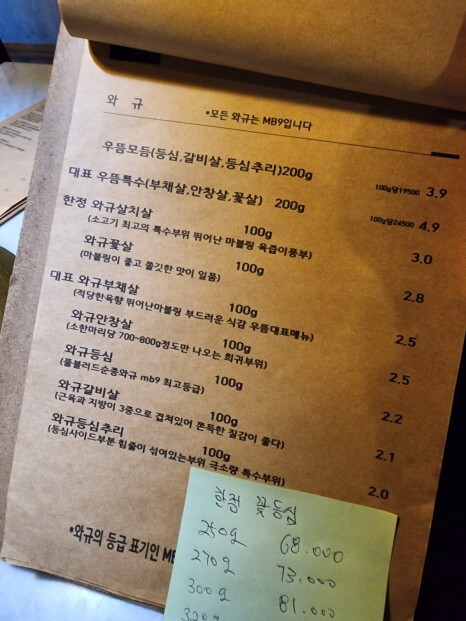 와 규
*모든 와규는 MB9입니다
우뜸모듬(등심,갈비살,등심추리)200g 100g당19500 3.9
대표 우뜸특수(부채살,안창살,꽃살) 200g 100g당24500 4.9
한정 와규살치살 100g 3.0
(소고기 최고의 특수부위 뛰어난 마블링 육즙이풍부)
와규꽃살 100g 2.8
(마블링이 좋고 쫄깃한 맛이 일품)
대표 와규부채살 100g 2.5
(적당한육향 뛰어난마블링 부드러운 식감 우뜸대표메뉴)
와규안창살 100g 2.5
(소한마리당 700~800g정도만 나오는 희귀부위)
와규등심 100g 2.2
(풀블러드순종와규 mb9 최고등급)
와규갈비살 100g 2.1
(근육과 지방이 3중으로 겹쳐있어 쫀득한 질감이 좋다)
와규등심추리 100g 2.0
(등심사이드부분 힘줄이 섞여있는부위 극소량 특수부위)
*와규의 등급 표기인 MB
한정 꽃등심
250g 68.000
270g 73.000
300g 81.000
320g